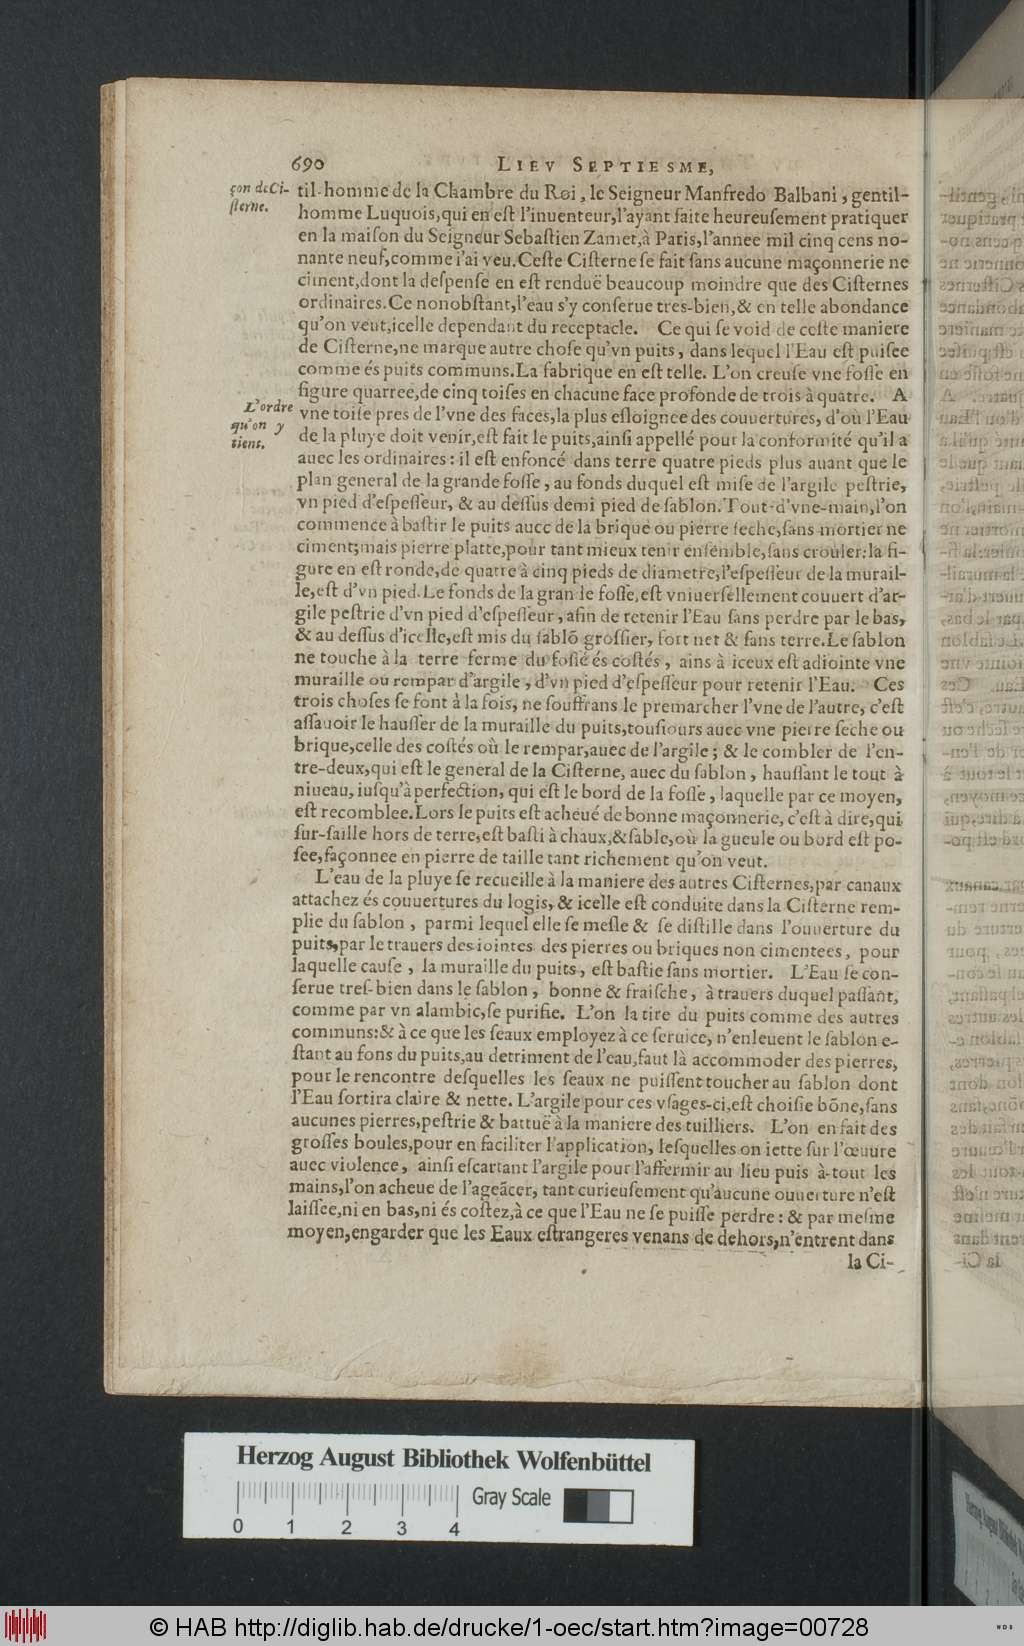 690 LIEV SEPTIESME,
çon de Ci-
sterne.
til-homme de la Chambre du Roi, le Seigneur Manfredo Balbani, gentil-
homme Luquois, qui en eſt l'inuenteur, l'ayant faite heureuſement pratiquer
en la maiſon du Seigneur Sebaſtien Zamet, à Paris, l'annee mil cinq cens no-
nante neuf, comme i'ai veu. Ceſte Ciſterne ſe fait ſans aucune maçonnerie ne
ciment, dont la deſpenſe en eſt renduë beaucoup moindre que des Ciſternes
ordinaires. Ce nonobſtant, l'eau s'y conſerue tres-bien, & en telle abondance
qu'on veut, icelle dependant du receptacle. Ce qui ſe void de ceſte maniere
de Ciſterne, ne marque autre choſe qu'vn puits, dans lequel l'Eau eſt puiſee
comme és puits communs. La fabrique en eſt telle. L'on creuſe vne foſſe en
figure quarree, de cinq toiſes en chacune face profonde de trois à quatre. A
L'ordre
qu'on y
tient.
vne toiſe pres de l'vne des faces, la plus eſloignee des couuertures, d'où l'Eau
de la pluye doit venir, eſt fait le puits, ainſi appellé pour la conformité qu'il a
auec les ordinaires: il eſt enfoncé dans terre quatre pieds plus auant que le
plan general de la grande foſſe, au fonds duquel eſt miſe de l'argile peſtrie,
vn pied d'eſpeſſeur, & au deſſus demi pied de ſablon. Tout-d'vne-main, l'on
commence à baſtir le puits auec de la brique ou pierre ſeche, ſans mortier ne
ciment; mais pierre platte, pour tant mieux tenir enſemble, ſans crouler: la fi-
gure en eſt ronde, de quatre à cinq pieds de diametre, l'eſpeſſeur de la murail-
le, eſt d'vn pied. Le fonds de la grande foſſe, eſt vniuerſellement couuert d'ar-
gile peſtrie d'vn pied d'eſpeſſeur, afin de retenir l'Eau ſans perdre par le bas,
& au deſſus d'icelle, eſt mis du ſablõ groſſier, fort net & ſans terre. Le ſablon
ne touche à la terre ferme du foſſé és coſtés, ains à iceux eſt adiointe vne
muraille ou rempar d'argile, d'vn pied d'eſpeſſeur pour retenir l'Eau. Ces
trois choſes ſe font à la fois, ne ſouffrans le premarcher l'vne de l'autre, c'eſt
aſſauoir le hauſſer de la muraille du puits, touſiours auec vne pierre ſeche ou
brique, celle des coſtés où le rempar, auec de l'argile; & le combler de l'en-
tre-deux, qui eſt le general de la Ciſterne, auec du ſablon, hauſſant le tout à
niueau, iuſqu'à perfection, qui eſt le bord de la foſſe, laquelle par ce moyen,
eſt recomblee. Lors le puits eſt acheué de bonne maçonnerie, c'eſt à dire, qui
ſur-ſaille hors de terre, eſt baſti à chaux, & ſable, où la gueule ou bord eſt po-
ſee, façonnee en pierre de taille tant richement qu'on veut.
L'eau de la pluye ſe recueille à la maniere des autres Ciſternes, par canaux
attachez és couuertures du logis, & icelle eſt conduite dans la Ciſterne rem-
plie du ſablon, parmi lequel elle ſe meſle & ſe diſtille dans l'ouuerture du
puits, par le trauers des iointes des pierres ou briques non cimentees, pour
laquelle cauſe, la muraille du puits, eſt baſtie ſans mortier. L'Eau ſe con-
ſerue treſ-bien dans le ſablon, bonne & fraiſche, à trauers duquel paſſant,
comme par vn alambic, ſe purifie. L'on la tire du puits comme des autres
communs: & à ce que les ſeaux employez à ce ſeruice, n'enleuent le ſablon e-
ſtant au fons du puits, au detriment de l'eau, faut là accommoder des pierres,
pour le rencontre deſquelles les ſeaux ne puiſſent toucher au ſablon dont
l'Eau ſortira claire & nette. L'argile pour ces vſages-ci, eſt choiſie bõne, ſans
aucunes pierres, peſtrie & battuë à la maniere des tuilliers. L'on en fait des
groſſes boules, pour en faciliter l'application, leſquelles on iette ſur l'œuure
auec violence, ainſi eſcartant l'argile pour l'affermir au lieu puis à-tout les
mains, l'on acheue de l'ageãcer, tant curieuſement qu'aucune ouuerture n'eſt
laiſſee, ni en bas, ni és coſtez, à ce que l'Eau ne ſe puiſſe perdre: & par meſme
moyen, engarder que les Eaux eſtrangeres venans de dehors, n'entrent dans
la Ci-
Herzog August Bibliothek Wolfenbüttel
Gray Scale
0 1 2 3 4
© HAB http://diglib.hab.de/drucke/1-oec/start.htm?image=00728